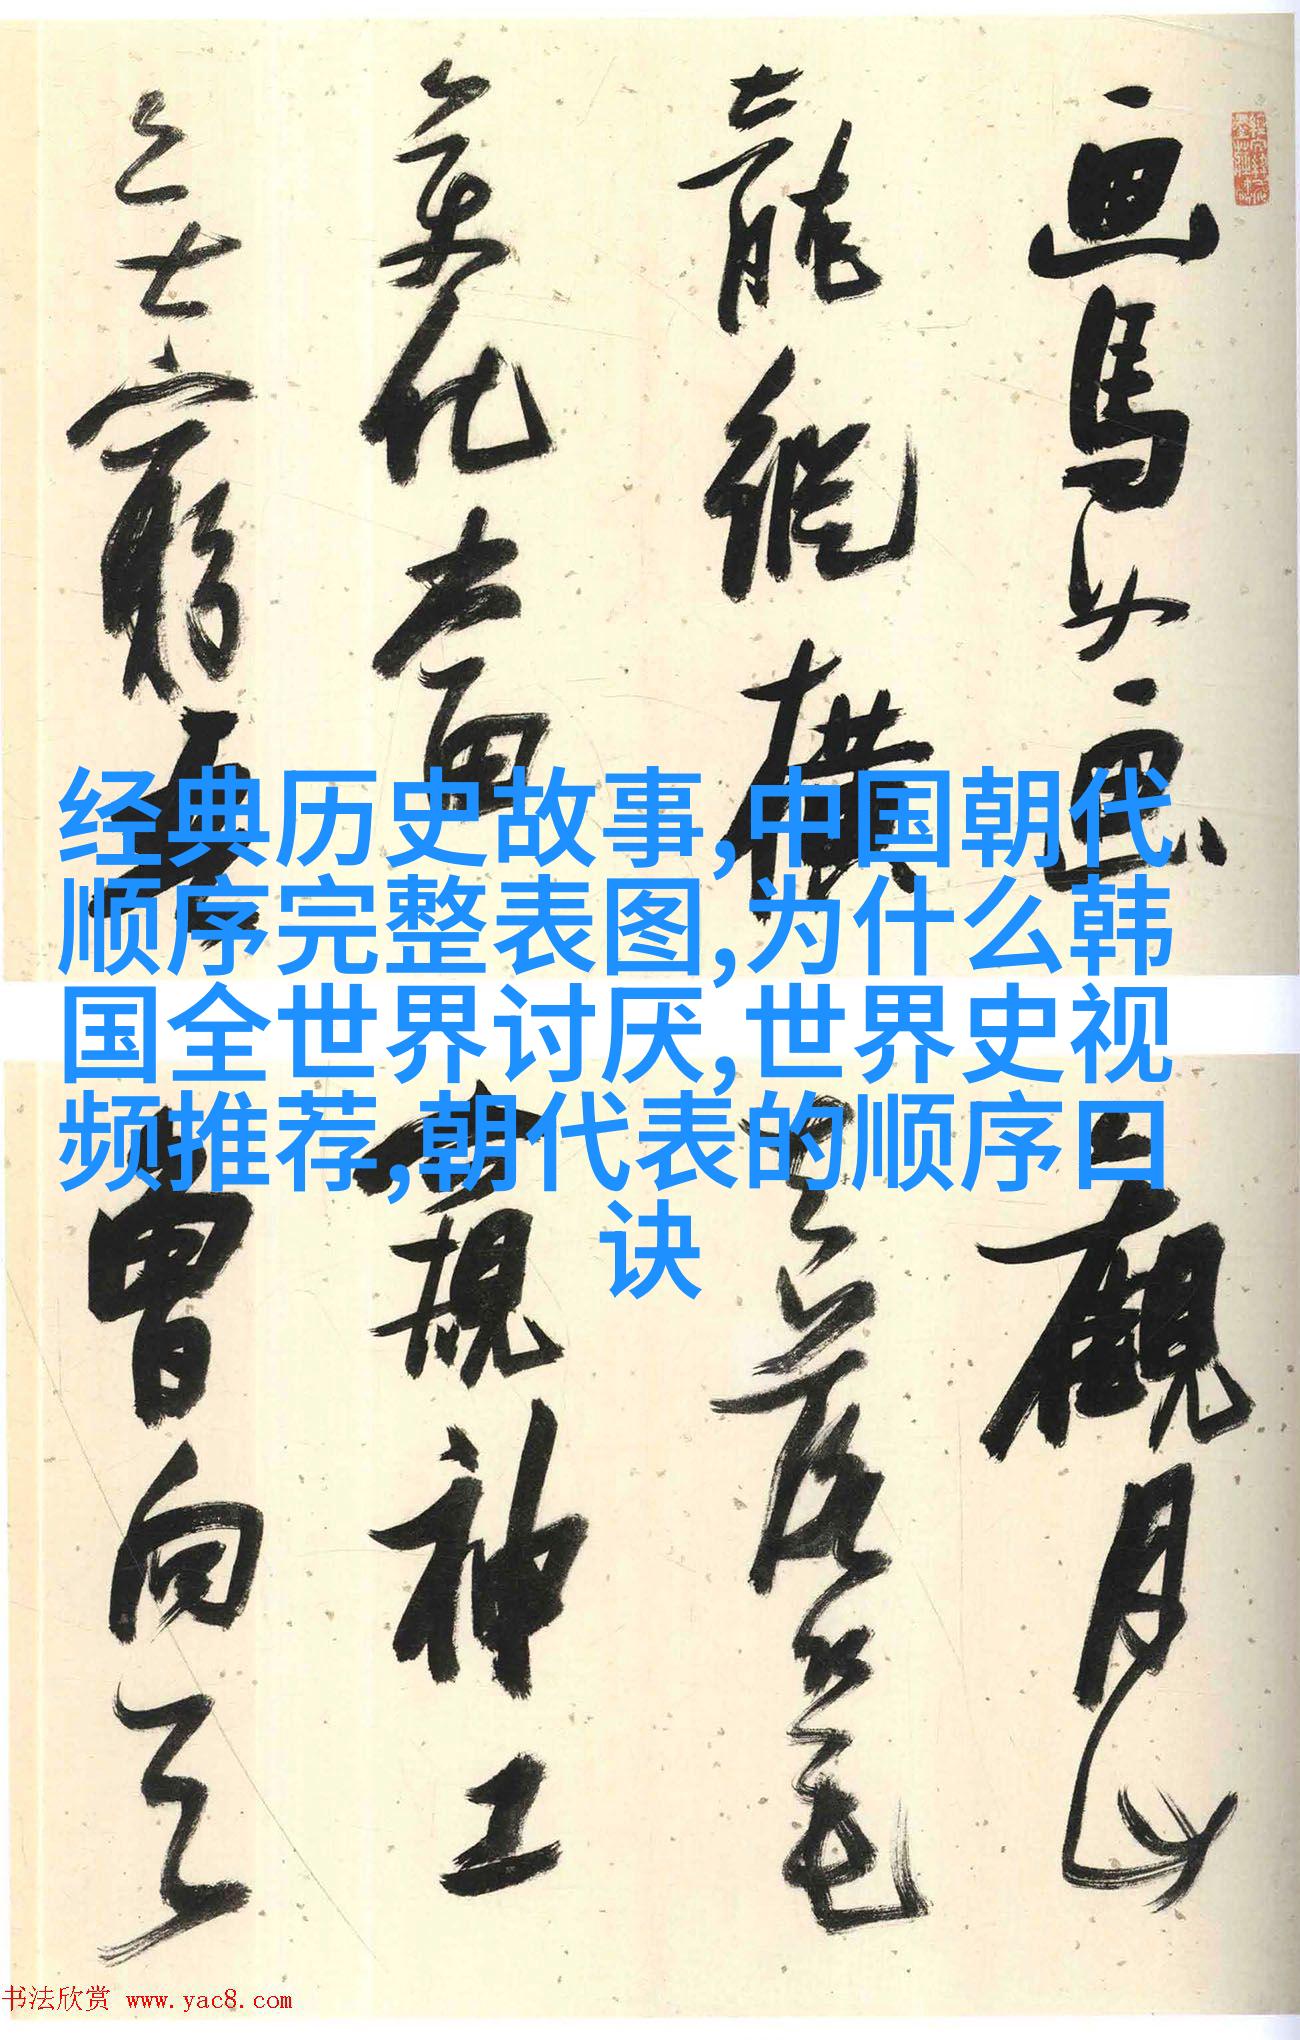 画馬如画
龍縱橫
變化當
無窮吾
经典历史故事,中国朝代
顺序完整表图,为什么韩
国全世界讨厌,世界史视
频推荐,朝代表的顺序口
诀
觀月山
人落筆
窺神工
曾向天
书法欣赏 www.yac8.com